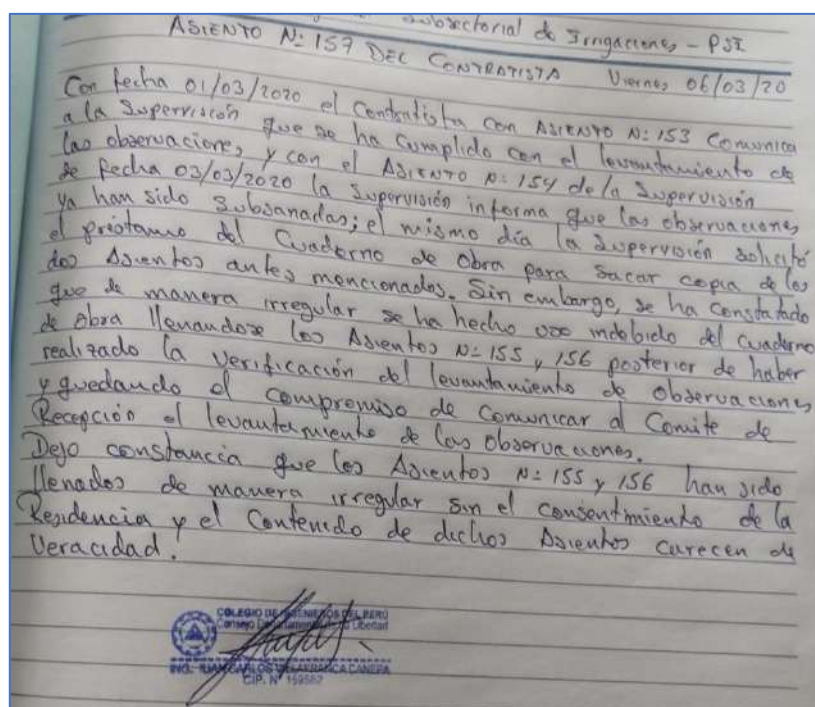 Subsectorial de Irrigaciones - PSI
ASIENTO N: 157 DEL CONTRATISTA Viernes 06/03/20
Con fecha 01/03/2020 el Contratista con ASIENTO N: 153 Comunica
a la Supervisión que se ha cumplido con el levantamiento de
las observaciones, y con el ASIENTO N: 154 de la Supervisión
de fecha 03/03/2020 la Supervisión informa que las observaciones
ya han sido Subsanadas; el mismo día la Supervisión solicitó
el préstamo del Cuaderno de Obra para Sacar copia de los
dos Asientos antes mencionados. Sin embargo, se ha constatado
que de manera irregular se ha hecho uso indebido del cuaderno
de Obra llenandose los Asientos N: 155 y 156 posterior de haber
realizado la verificación del levantamiento de observaciones
y quedando el compromiso de Comunicar al Comite de
Recepción el levantamiento de las observaciones.
Dejo constancia que los Asientos N: 155 y 156 han sido
llenados de manera irregular sin el consentimiento de la
Residencia y el Contenido de dichos Asientos carecen de
Veracidad.
COLEGIO DE INGENIEROS DEL PERÚ
Consejo Departamental de La Libertad
ING. JUAN CARLOS VILLAFRANCA CANEPA
CIP. N°